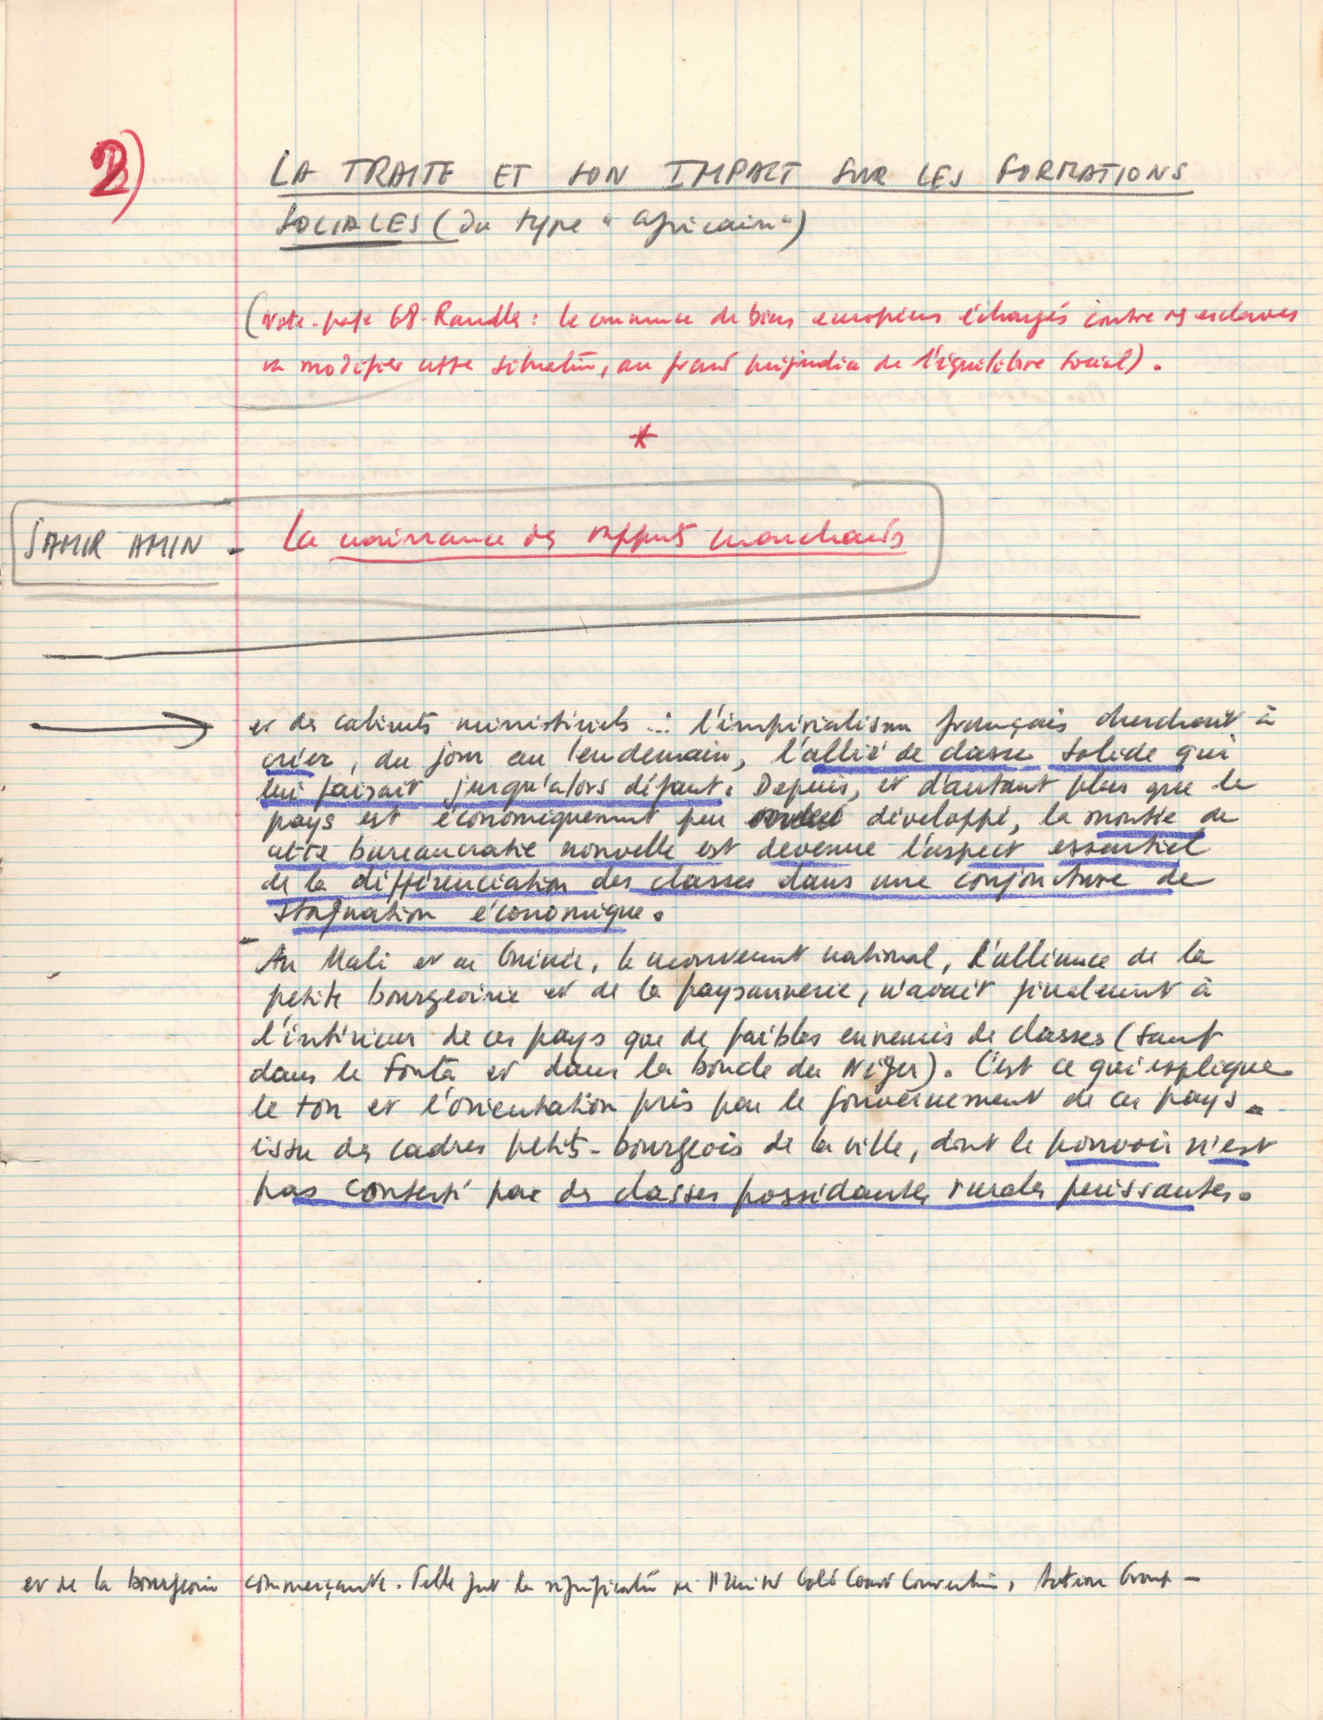 2)
LA TRAITE ET SON IMPACT SUR LES FORMATIONS
SOCIALES (du type "africain")
(Note-page 68-Randles : le commerce de biens européens échangés contre des esclaves
va modifier cette situation, au grand préjudice de l'équilibre social).
*
SAMIR AMIN - La naissance des rapports marchands
→ et des cabinets ministériels ... : l'impérialisme français cherchait à
créer, du jour au lendemain, l'allié de classe solide qui
lui faisait jusqu'alors défaut. Depuis, et d'autant plus que le
pays est économiquement peu développé, la montée de
cette bureaucratie nouvelle est devenue l'aspect essentiel
de la différenciation des classes dans une conjoncture de
stagnation économique.
- Au Mali et en Guinée, le mouvement national, l'alliance de la
petite bourgeoisie et de la paysannerie, n'avait finalement à
l'intérieur de ces pays que de faibles ennemis de classes (sauf
dans le Fouta et dans la boucle du Niger). C'est ce qui explique
le ton et l'orientation pris par le gouvernement de ces pays -
issu des cadres petits-bourgeois de la ville, dont le pouvoir n'est
pas contesté par des classes possédantes rurales puissantes.
et de la bourgeoisie commerçante. Telle fut la signification de l'United Gold Coast Convention, Action Group -